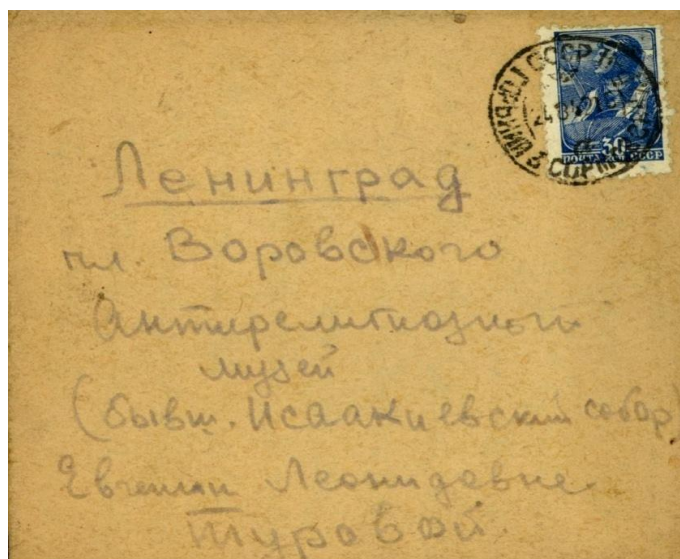 30
ПОЧТА СССР
Ленинград
пл. Воровского
Антирелигиозный
музей
(бывш. Исаакиевский собор)
Евгении Леонидовне
Туровой